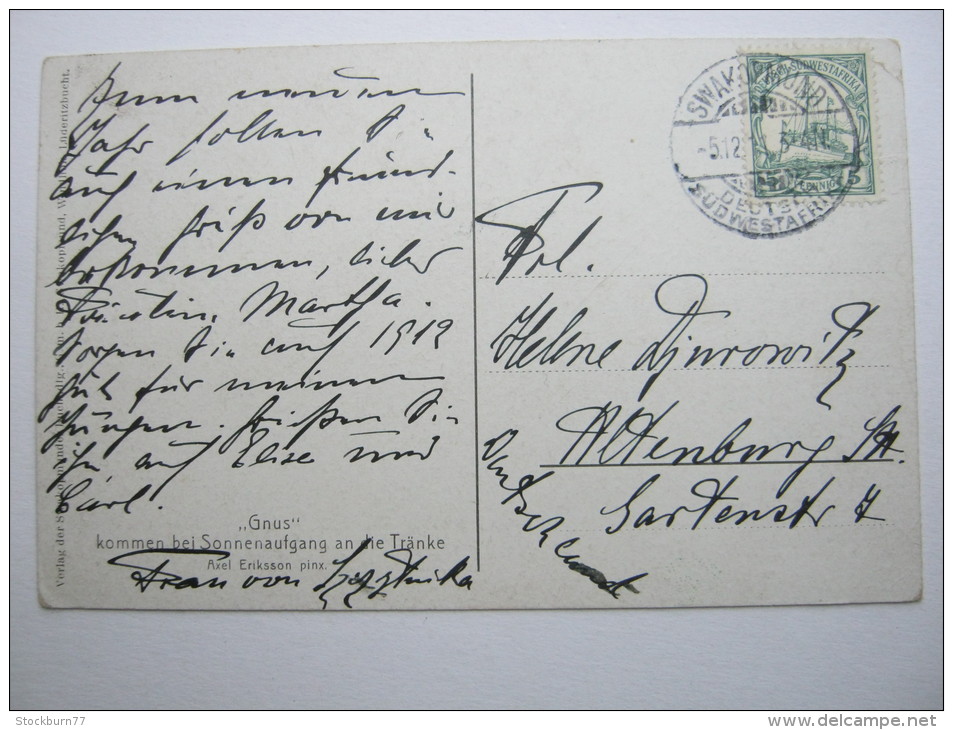 Zum neuen
Jahr sollen Sie
auch einen freund-
lichen Gruß von mir
bekommen, liebes
Fräulein Martha.
Sorgen Sie auch 1912
gut für meinen
Jungen. Grüßen Sie
ihn auch Elise und
Carl.
„Gnus"
kommen bei Sonnenaufgang an die Tränke
Axel Eriksson pinx.
Frau von
Verlag der Swakopmunder
Lüderitzbucht.
SWAKOPMUND
5.12
DEUTSCH-
SÜDWESTAFRIKA
DEUTSCH-SÜDWESTAFRIKA
5 PFENNIG 5
Frl.
Helene Djurowitz
Altenburg S/A.
Gartenstr 7
Deutschland
Stockburn77
http://www.delcampe.net